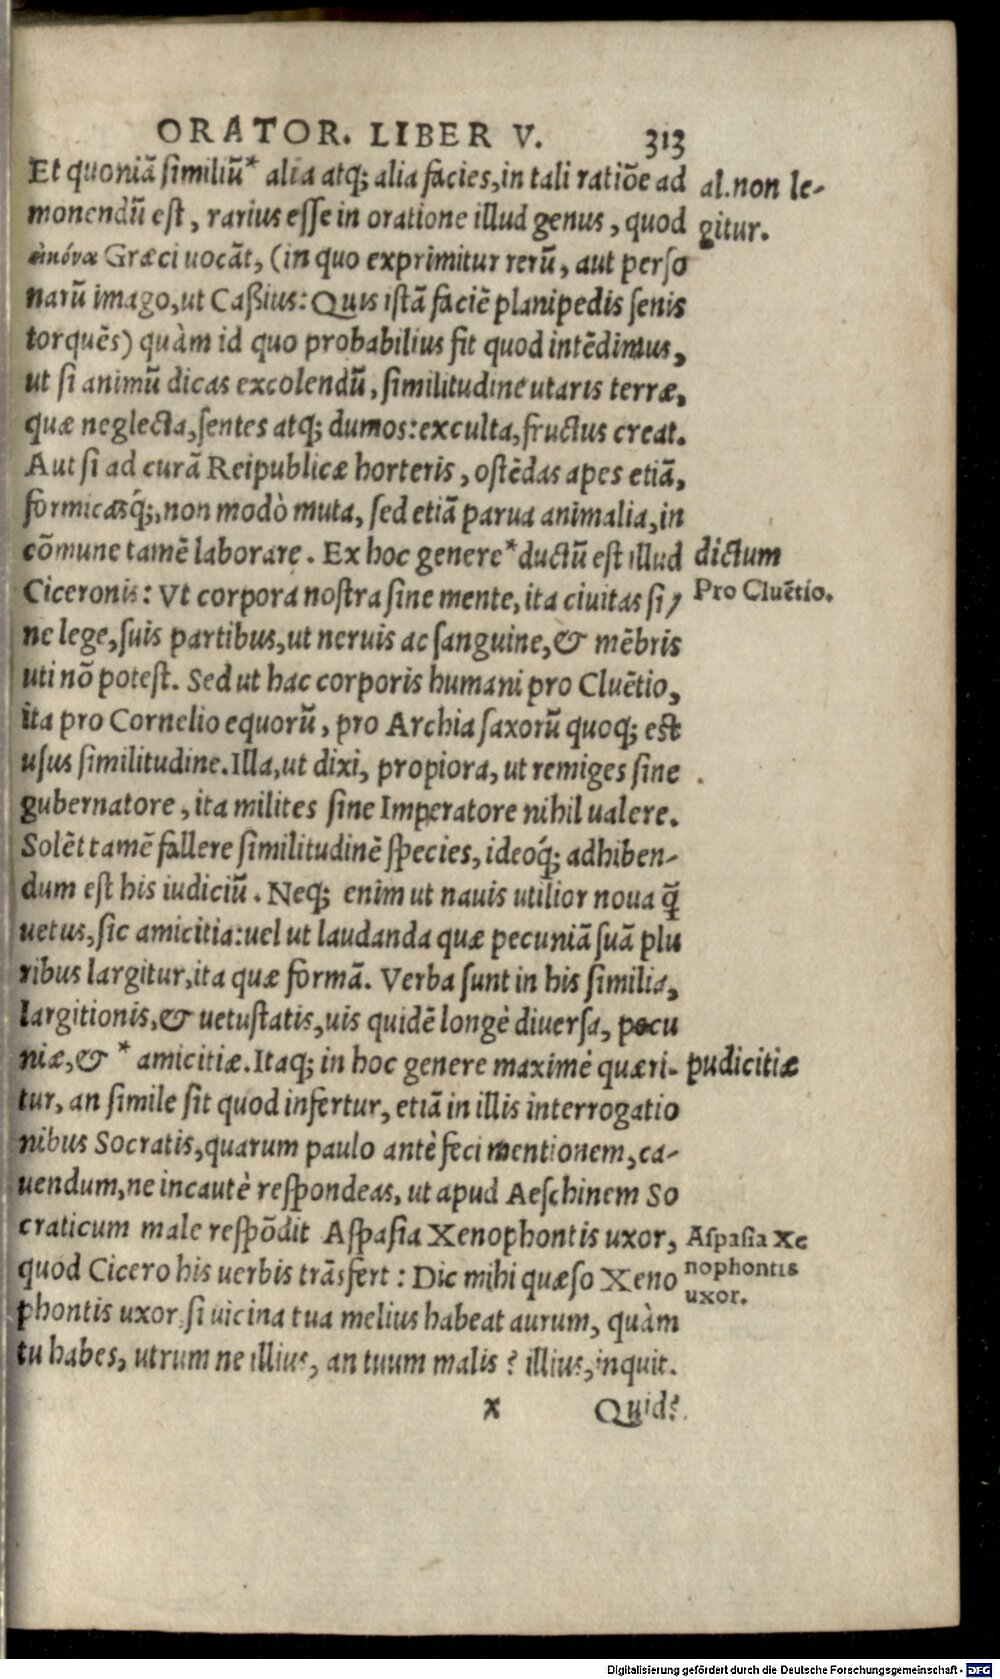 ORATOR. LIBER V. 313
Et quoniã similiũ* alia atq; alia facies, in tali ratiõe ad
monendũ est, rarius esse in oratione illud genus, quod
εἰκόνα Græci uocãt, (in quo exprimitur rerũ, aut perso
narũ imago, ut Caßius: Quis istã faciẽ planipedis senis
torquẽs) quàm id quo probabilius fit quod intẽdimus,
ut si animũ dicas excolendũ, similitudine utaris terræ,
quæ neglecta, sentes atq; dumos: exculta, fructus creat.
Aut si ad curã Reipublicæ horteris, ostẽdas apes etiã,
formicasq́;, non modò muta, sed etiã parua animalia, in
cõmune tamẽ laborare. Ex hoc genere* ductũ est illud
Ciceronis: Vt corpora nostra sine mente, ita ciuitas si-
ne lege, suis partibus, ut neruis ac sanguine, & mẽbris
uti nõ potest. Sed ut hac corporis humani pro Cluẽtio,
ita pro Cornelio equorũ, pro Archia saxorũ quoq; est
usus similitudine. Illa, ut dixi, propiora, ut remiges sine
gubernatore, ita milites sine Imperatore nihil ualere.
Solẽt tamẽ fallere similitudinẽ species, ideoq́; adhiben-
dum est his iudiciũ. Neq; enim ut nauis utilior noua q̃
uetus, sic amicitia: uel ut laudanda quæ pecuniã suã plu
ribus largitur, ita quæ formã. Verba sunt in his similia,
largitionis, & uetustatis, uis quidẽ longè diuersa, pecu
niæ, & * amicitiæ. Itaq; in hoc genere maximè quæri-
tur, an simile sit quod infertur, etiã in illis interrogatio
nibus Socratis, quarum paulo antè feci mentionem, ca-
uendum, ne incautè respondeas, ut apud Aeschinem So
craticum male respõdit Aspasia Xenophontis uxor,
quod Cicero his uerbis trãsfert: Dic mihi quæso Xeno
phontis uxor si uicina tua melius habeat aurum, quàm
tu habes, utrum ne illius, an tuum malis? illius, inquit.
x Quid?
al. non le-
gitur.
dictum
Pro Cluẽtio.
pudicitiæ
Aspasia Xe
nophontis
uxor.
Digitalisierung gefördert durch die Deutsche Forschungsgemeinschaft - DFG